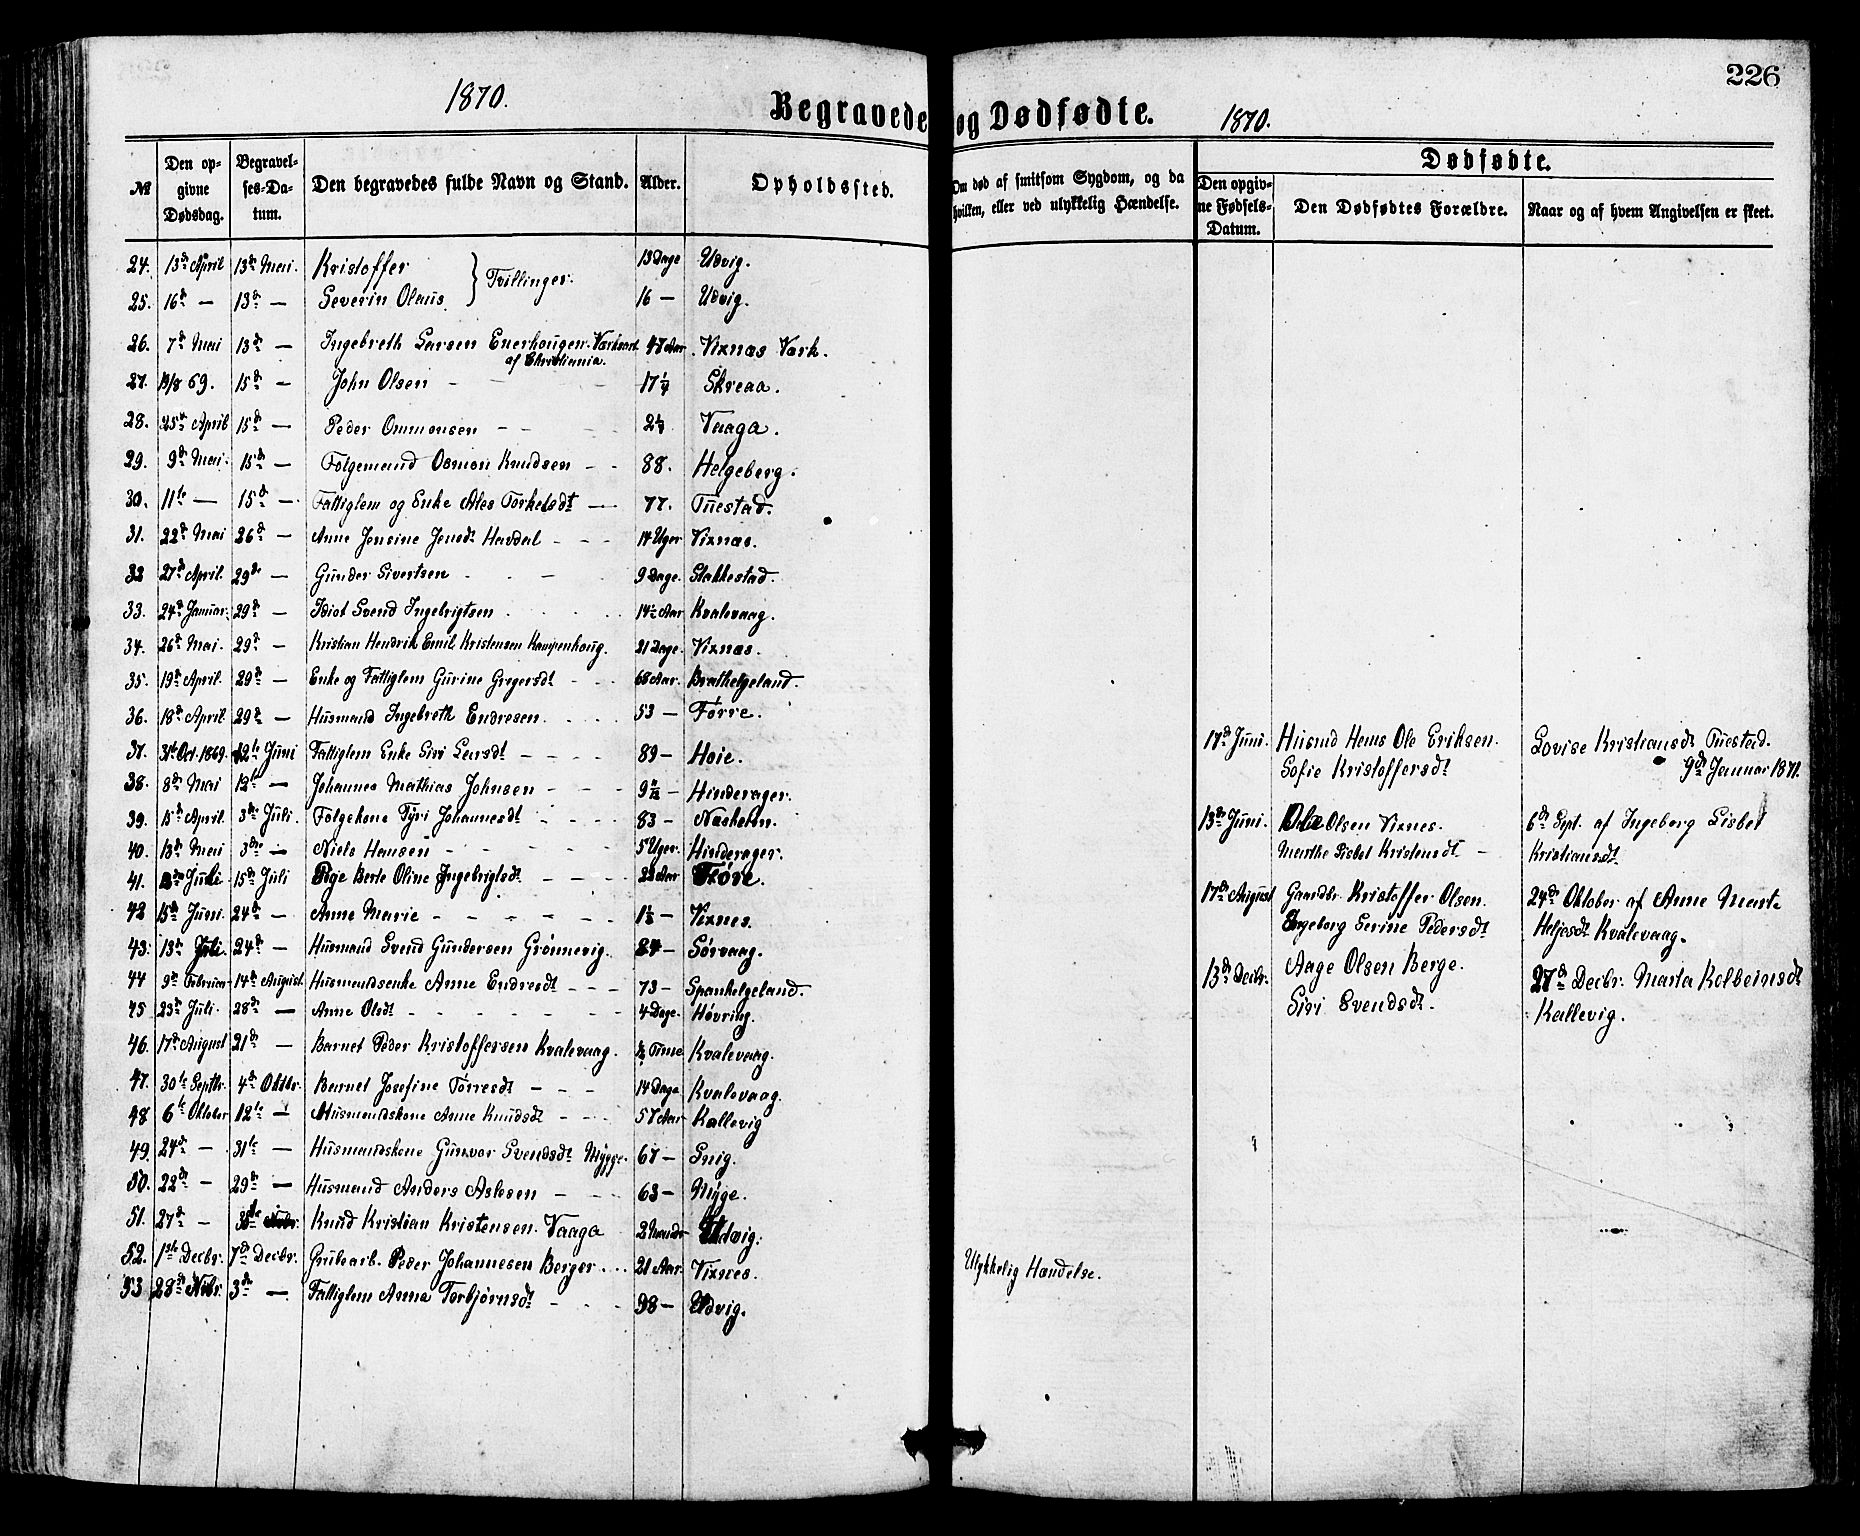 226
1870.
Begravede og Dødfødte.
1870.
Dødfødte.
№
Den opgivne Dødsdag.
Begravelses-Datum.
Den begravedes fulde Navn og Stand.
Alder.
Opholdssted.
Om død af smitsom Sygdom, og da hvilken, eller ved ulykkelig Hændelse.
Den opgivne Fødsels-Datum.
Den Dødfødtes Forældre.
Naar og af hvem Angivelsen er skeet.
24. 13de April 13de Mai. Kristoffer } Tvillinger. 13 Dage Udvig.
25. 16de — 13de — Severin Olaus. 16 — Udvig.
26. 7de Mai 13de — Ingebreth Larsen Enerhougen. af Christiania. 47 Aar Vixnæs Værk.
27. 69. 15de — John Olsen — 17 Skreaa.
28. 25de April 15de — Peder Ommonsen — — 2 Vaaga.
29. 9de Mai. 15de — Folgemand Osmon Knudsen — — 88. Helgeberg.
30. 11te — 15de —. Fattiglem og Enke Ales Torkelsdt — 77. Tuestad.
31. 22de Mai 26de — Anne Jensine Jensdt Havdal — — — 14 Uger Vixnæs.
32 27de April. 29de — Gunder Sivertsen 9 Dage. Stakkestad.
33. 24de Januar. 29de — Idiot Svend Ingebrigtsen 14½ Aar Kvalevaag.
34. 26de Mai. 29de — Kristian Hendrik Emil Kristensen Kampenhoug. 21 Dage. Vixnæs.
35. 19de April. 29de — Enke og Fattiglem Gurine Gregersdt 68 Aar. Brathelgeland.
36. 18de April 29de — Husmand Ingebreth Endresen. 53 — Førre.
37. 31te Oct. 1869. 12te Juni Fattiglem Enke Siri Larsdt — — — — 89 — Høie.
38. 8de Mai 12te — Johannes Mathias Johnsen — — — 9 — Hinderager.
39. 15de April. 3die Juli. Folgekone Tyri Johannesdt — — — 83 — Næsheim.
40. 13de Mai 3die — Niels Hansen — — — 5 Uger. Hinderager.
41. Juli 15de Juli Pige Berte Oline Ingebrigtsdt — — — 22 Aar Fløre.
42 15de Juni. 24de — Anne Marie — — — — — 1½ — Vixnes.
43. 13de Juli. 24de — Husmand Svend Gundersen Grønnevig. 84 — Sørvaag.
44 9de Februar 14de August. Husmandsenke Anne Endresdt — — — 73 — Spanhelgeland.
45 23de Juli. 28de — Anne Olsdt — — — — — 4 Dage. Høvring.
46. 17de August 21de — Barnet Peder Kristoffersen Kvalevaag. ½ Time Kvalevaag.
47. 30te Septbr. 4de Oktbr. Barnet Josefine Torresdt — — — 14 Dage Kvalevaag.
48 6te Oktober 12te — Husmandskone Anne Knudsdt — — — 57 Aar Kallevig
49. 24de — 31te — Husmandskone Gunvor Svendsdt Nygge. 67 — Snig.
50. 22de — 29de — Husmand Anders Aslesen — — — 63 — Nyge.
51. 27de — Knud Kristian Kristensen. Vaaga 2 Udvig.
52. 1ste Decbr. 7de Decbr. Grubearb. Peder Johannesen Berger. 21 Aar. Vixnes. Ulykkelig Hændelse.
53 28de Novbr. 3die — Fattiglem Anna Torbjørnsdt — — — 98 — Udvig.
17de Juni. Husmd Hans Ole Eriksen. Lovise Kristiansdt Tuestad.
Sofie Kristoffersdt 9de Januar 1871.
13de Juni. Ole Olsen Vixnes. 6te Sept. af Ingeborg Lisbet
Marthe Lisbet Kristensdt — Kristiansdt
17de August Gaardbr. Kristoffer Olsen. 24de Oktober af Anne Marte
Ingeborg Serine Pedersdt Heljesdt Kvalevaag.
13de Decbr. Aage Olsen Berge. 27de Decbr. Marta Kolbeinsdt
Siri Svendsdt. Kallevig.